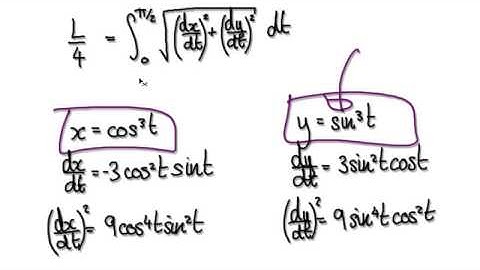 L/4 = ∫₀^π/2 √((dx/dt)² + (dy/dt)²) dt
x = cos³t
dx/dt = -3cos²t sint
(dx/dt)² = 9cos⁴t sin²t
y = sin³t
dy/dt = 3sin²t cost
(dy/dt)² = 9sin⁴t cos²t